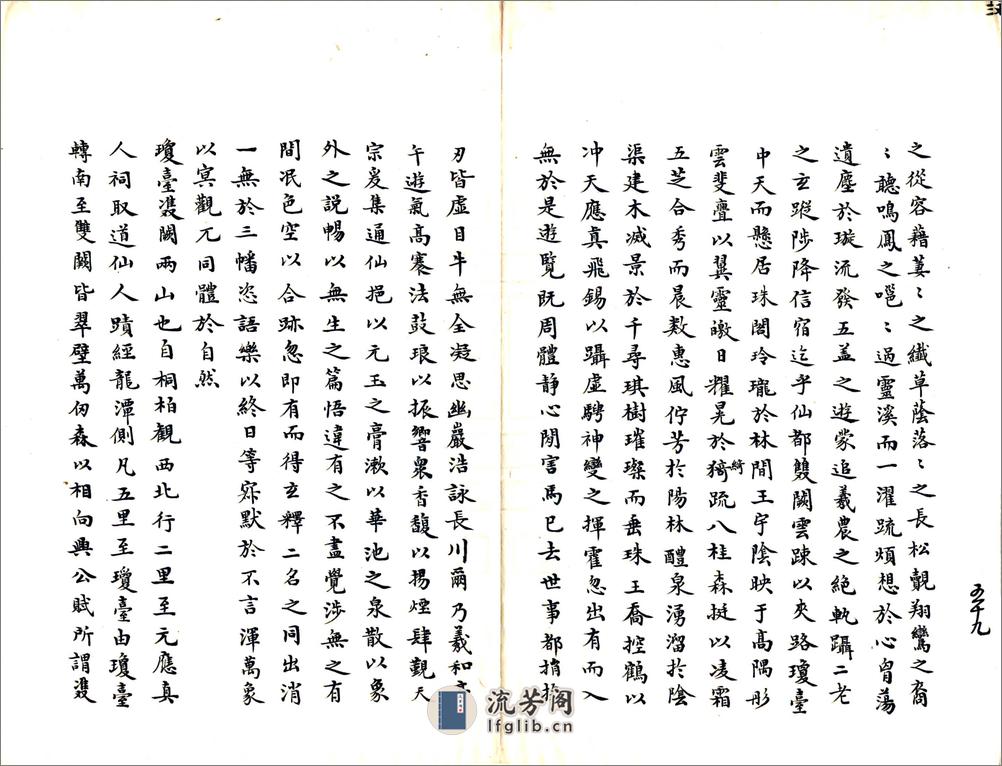 之從容藉萋〻之纎草蔭落〻之長松覿翔鸞之裔
〻聽鳴鳳之嗈〻過靈溪而一濯疏煩想於心胷蕩
遺塵於璇流發五盖之遊蒙追羲農之絶軌躡二老
之玄蹤陟降信宿迄乎仙都雙闕雲竦以夾路瓊臺
中天而懸居珠閣玲瓏於林間王宇陰映于高隅彤
雲斐亹以翼靈皦日耀晃於猗綺疏八桂森挺以凌霜
五芝合秀而晨敷惠風佇芳於陽林醴泉湧溜於陰
渠建木减景於千尋琪樹璀璨而垂珠王喬控鶴以
冲天應真飛錫以躡虚騁神變之揮霍忽出有而入
無於是遊覽既周體静心閒害馬已去世事都捐投
刃皆虚目牛無全凝思幽巖浩詠長川爾乃羲和亭
午遊氣高褰法鼓琅以振響衆香馥以揚煙肆覲天
宗爰集通仙挹以元玉之膏漱以華池之泉散以象
外之説暢以無生之篇悟違有之不盡覺涉無之有
間泯色空以合跡忽即有而得玄釋二名之同出消
一無於三幡恣語樂以終日等寂默於不言渾萬象
以冥觀兀同體於自然
瓊臺雙闕兩山也自桐柏觀西北行二里至元應真
人祠取道仙人蹟經龍潭側凡五里至瓊臺由瓊臺
轉南至雙闕皆翠壁萬仞森以相向興公賦所謂雙
五十九
流芳阁
lfglib.cn